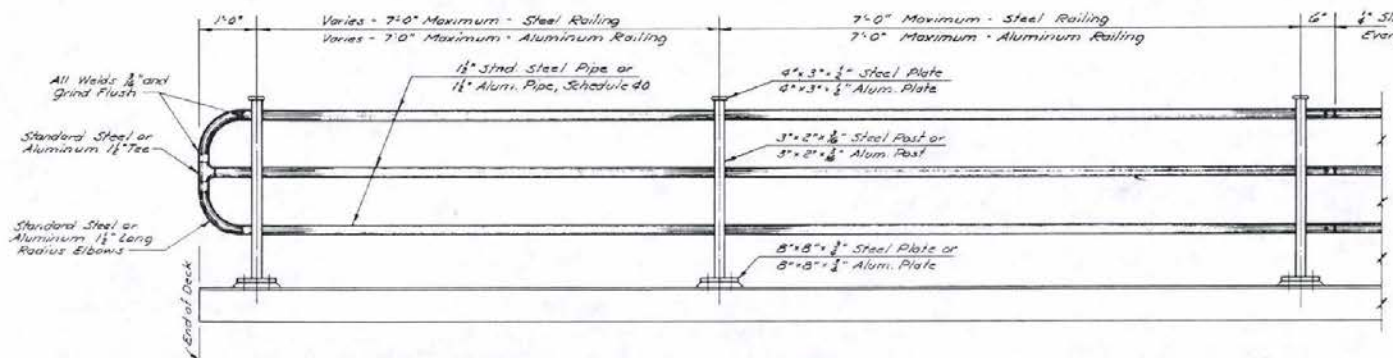 1'-0"
Varies - 7'-0" Maximum - Steel Railing
Varies - 7'-0" Maximum - Aluminum Railing
7'-0" Maximum - Steel Railing
7'-0" Maximum - Aluminum Railing
6"
All Welds 3/16" and
Grind Flush
1½" Stnd. Steel Pipe or
1½" Alum. Pipe, Schedule 40
4" x 3" x ½" Steel Plate
4" x 3" x ½" Alum. Plate
Standard Steel or
Aluminum 1½" Tee
3" x 2" x 3/16" Steel Post or
3" x 2" x 3/16" Alum. Post
Standard Steel or
Aluminum 1½" Long
Radius Elbows
8" x 8" x ¾" Steel Plate or
8" x 8" x ¾" Alum. Plate
End of Deck